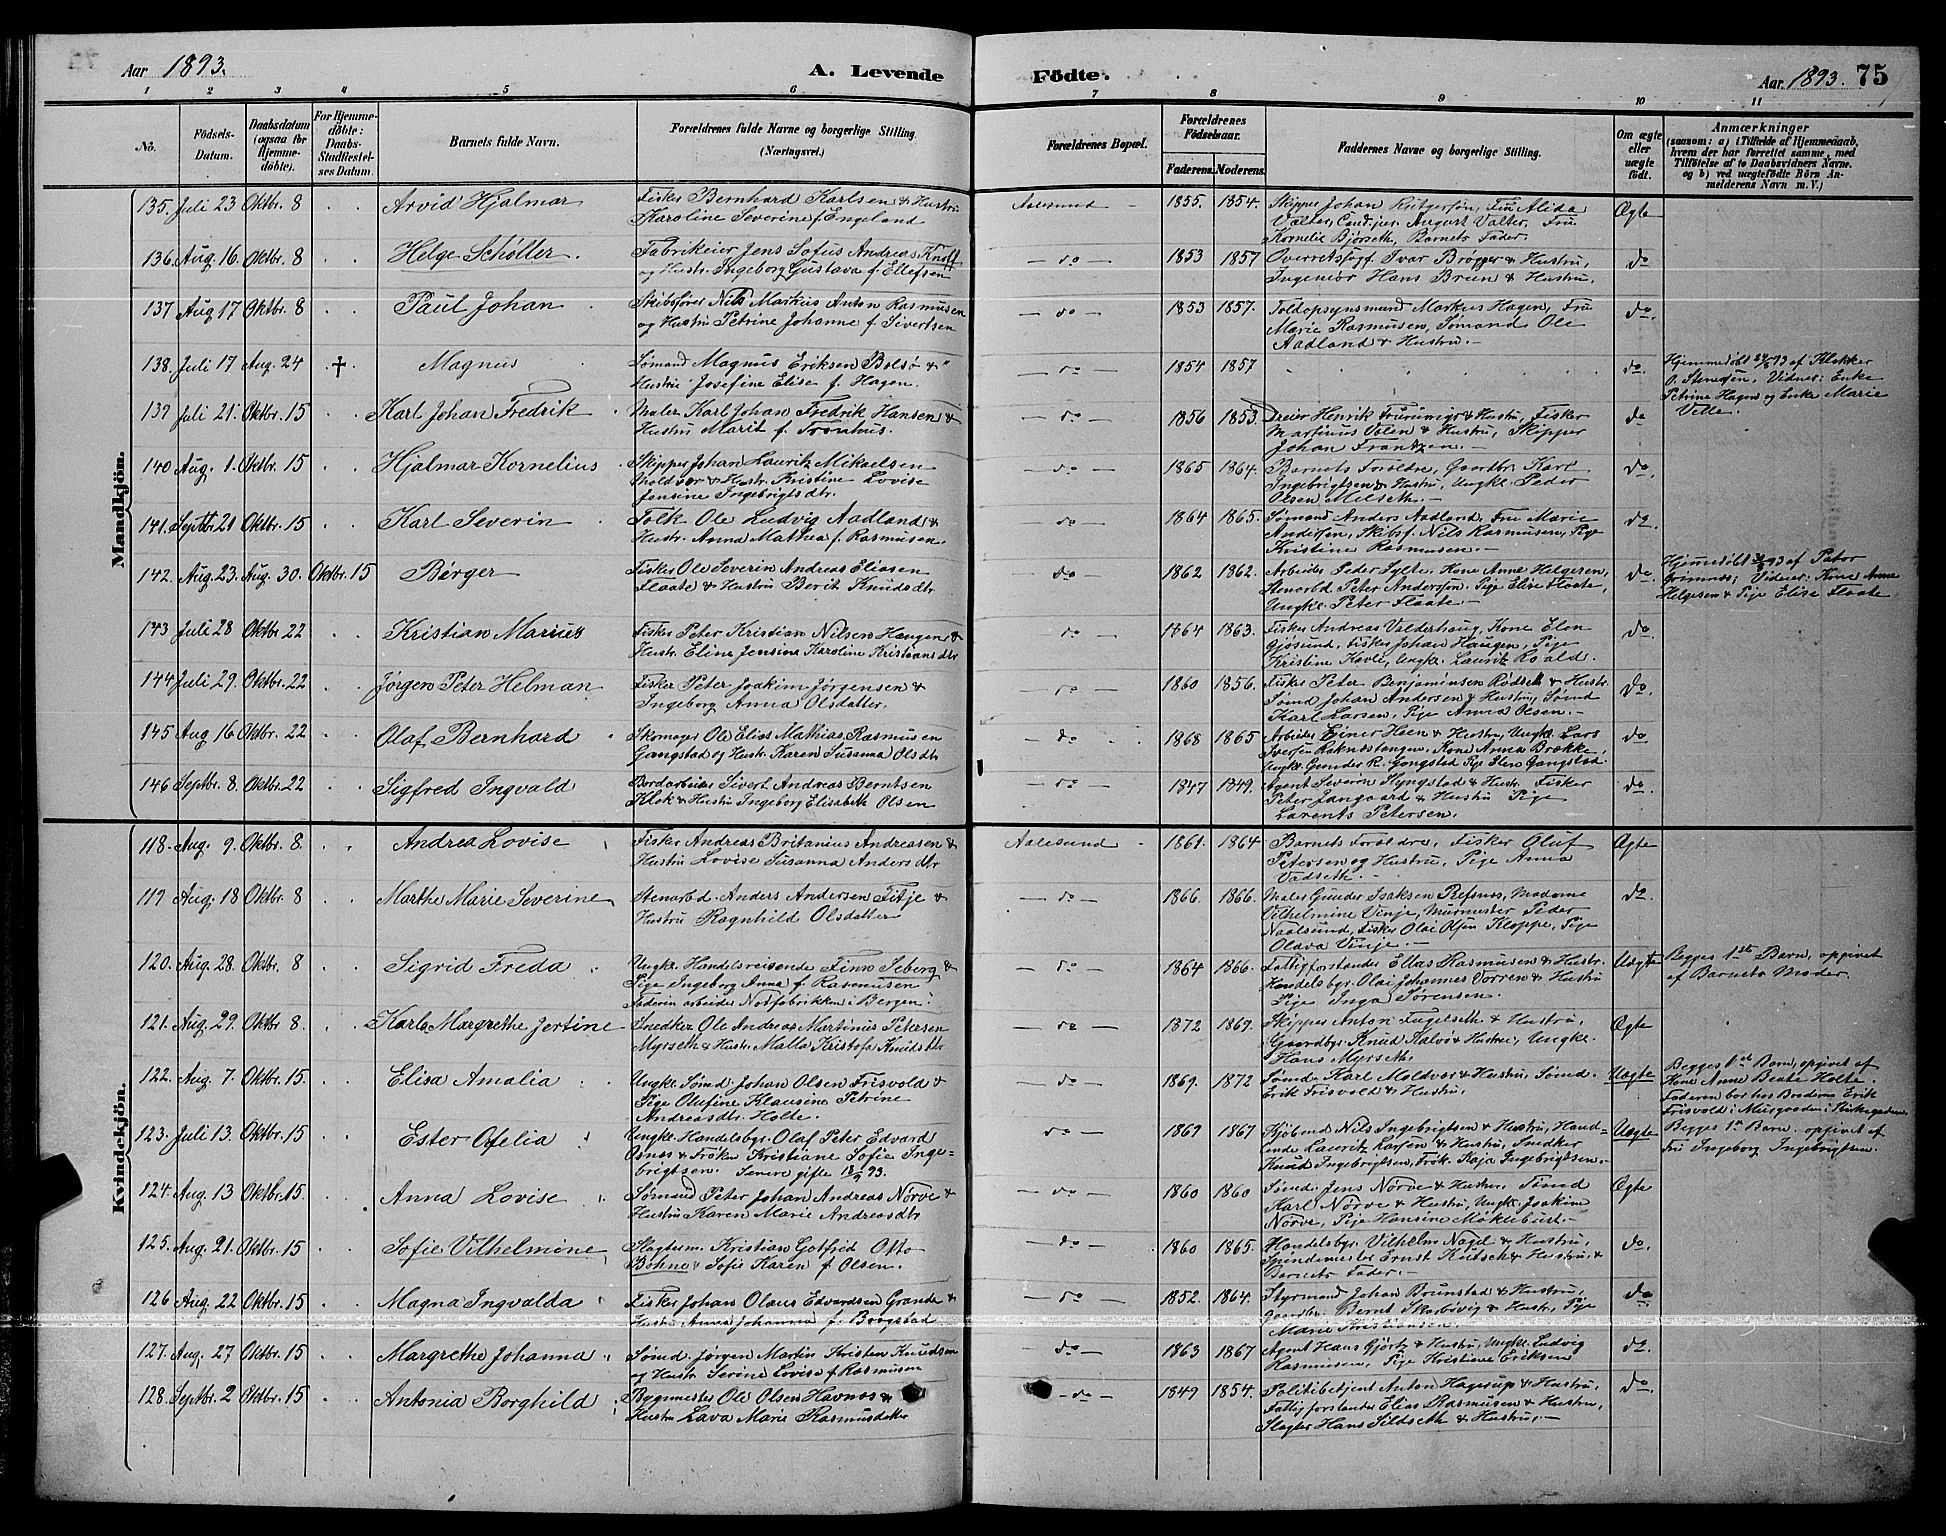 Aar 1893.
A. Levende Födte.
Aar 1893. 75
1 2 3 4 5 6 7 8 9 10 11
No.
Födsels-Datum.
Daabsdatum (ogsaa for Hjemme-döbte).
For Hjemme-döbte: Daabs-Stadfæstel-ses Datum.
Barnets fulde Navn.
Forældrenes fulde Navne og borgerlige Stilling.
(Næringsvei.)
Forældrenes Bopæl.
Forældrenes Födselsaar.
Faderens. Moderens.
Faddernes Navne og borgerlige Stilling.
Om ægte eller uægte födt.
Anmærkninger
(saasom: a) i Tilfælde af Hjemmedaab, hvem der har forrettet samme, med Tilföielse af to Daabsvidners Navne. og b) ved uægtefödte Börn An-melderens Navn m. V.)
Mandkjön.
135. Juli 23 Oktbr. 8 Arvid Hjalmar Fisker Bernhard Karlsen & Hustru Aalesund 1855. 1854. Skipper Johan Rutgersøn, Fru Alida Ægte
Karoline Severine f. Engeland Valter, August Valter, Fru
Kornelie Bjørseth, Barnets Fader.
136. Aug. 16. Oktbr. 8 Helge Schøller. Fabrikeier Jens Sofus Andreas Knoff do 1853 1857 Overretssagf. Ivar Brøgger & Hustru, do
og Hustr. Ingeborg Gustava f. Ellefsen Ingeniør Hans Brun & Hustru.
137 Aug 17 Oktbr. 8 Paul Johan Skibsfører Nils Markus Anton Rasmussen do 1853 1857. Toldopsynsmand Markus Hagen, Fru do.
og Hustru Petrine Johanne f. Sivertsen Marie Rasmussen, Sømand Ole
Aadland & Hustru.
138. Juli 17 Aug. 24 † Magnus Sømand Magnus Eriksen Bolsø & do 1854 1857 do. Hjemmedøbt 24/8 93 af Klokker
Hustru Josefine Elise f. Hagen. O. Stenesøn, Vidner: Enke
Petrine Hagen og Enke Marie
Velle.
139 Juli 21. Oktbr. 15 Karl Johan Fredrik Maler Karl Johan Fredrik Hansen & do 1856 1853 Dreier Henrik & Hustru, Fisker do
Hustru Marit f. Tronhus. Martinus Valen & Hustru, Skipper
Johan Frantzen.
140 Aug. 1. Oktbr. 15 Hjalmar Kornelius Skipper Johan Lauritz Mikaelsen do 1865 1864. Barnets Foreldre, Gaardbr. Karl do.
& Hustr. Kristine Lovise Ingebrigtsen & Hustru, Ungkl. Peder
Jensine Ingebrigtsdtr. Olsen Melseth.
141. Septbr. 21 Oktbr. 15 Karl Severin Tolk Ole Ludvig Aadland & do 1864 1865. Sømand Anders Aadland, Fru Marie do.
Hustr. Anna Mathea f. Rasmusen. Andersen, Skibsf. Nils Rasmusen, Pige
Kristine Rasmusen.
142. Aug. 23. Aug. 30. Oktbr. 15 Børger Fisker Ole Severin Andreas Eliasen do 1862 1862. Arbeider Peder Sylte, Kone Anne Helgesen, do. Hjemmedøbt 30/8 93 af Pastor
Flaate & Hustru Berit Knudsdtr. Stenarbd. Peter Andersøn. Pige Elise Flaate, Grimnes; Vidner: Kone Anne
Ungkl. Peter Flaate. Helgesen & Pige Elise Flaate.
143 Juli 28 Oktbr 22 Kristian Marius Fisker Peter Kristian Nilsen Haugen & do 1864 1863. Fisker Andreas Valderhaug, Kone Elen do.
Hustr. Eline Jensine Karoline Kristiansdtr Gjøsund, Fisker Johan Haugen, Pige
Kristine Kavli, Ungk. Lauritz Roald.
144 Juli 29. Oktbr. 22 Jørgen Peter Helman Fisker Peter Joakim Jørgensen & do 1860 1856. Fisker Peter Benjaminsen Rødseth & Hustr. do.
Ingeborg Anna Olsdatter. Sømd Johan Andersen & Hustru, Sømd
Karl Larsen, Pige Anna Olsen.
145 Aug 16 Oktbr. 22 Olaf Bernhard Skomager Ole Elias Mathias Rasmusen do 1868 1865 Arbeider Einer Heen & Hustru, Ungk. Lars do
Gangstad og Hustr. Karen Susanna Olsdtr Iversen Raknestangen, Kone Anna Brække,
Ungkl. Gunder R. Gangstad Pige Elen Gangstad.
146 Septbr. 8. Oktbr. 22 Sigfred Ingvald Bordarbeider Sivert Andreas Berntsen do 1847 1849. Agent Severin Slyngstad & Hustr. Fisker do.
Klok & Hustru Ingeborg Elisabeth Olsen Peter Langaard & Hustru Pige
Larents Petersen.
Kvindekjön.
118. Aug. 9. Oktbr. 8. Andrea Lovise Fisker Andreas Britanius Andreasen & Aalesund 1861. 1864 Barnets Foreldre, Fisker Oluf Ægte
Hustru Lovise Susanna Andersdtr Petersen og Hustru, Pige Anna
Vadseth.
119 Aug. 18 Oktbr. 8 Marthe Marie Severine Stenarbd. Anders Andersen Titje & do 1866 1866. Maler Gunder Isaksen Refsnes, Madame do.
Hustru Ragnhild Olsdatter Vilhelmine Vinje, Murmester Peder
Naalsund, Fisker Olai Olsen Kloppe, Pige
Olava Vinje.
120. Aug. 28. Oktbr. 8 Sigrid Freda Ungk. Handelsreisende Finn Seberg & do 1864 1866. Fattigforstander Elias Rasmusen & Hustr. Uægte Begges 1ste Barn, opgivet
Pige Ingeborg Anna f. Rasmusen Handelsbgr. Olai Johannes Vorren & Hustru af Barnets Moder.
Faderen arbeider Notfabrikken i Bergen. Pige Inga Sørensen.
121. Aug. 29. Oktbr 8. Karla Margrethe Jertine Snedker Ole Andreas Martinus Petersen do 1872 1869. Skipper Anton Fugelseth & Hustru, Ægte
Myrseth & Hustr. Malla Kristofa Knudsdtr Gaardbgr. Knud Kalvø & Hustru, Ungkl.
Hans Myrseth.
122. Aug. 7. Oktbr. 15. Elisa Amalia Ungkl. Sømd. Johan Olsen Frisvold & do 1869. 1872 Sømd. Karl Moldvær & Hustru, Sømd. Uægte Begges 1ste Barn, opgivet af
Pige Olufine Klausine Petrine Erik Frisvold & Hustru. Kone Anne Bente Holte.
Andreasdtr. Holte. Faderen bor hos Broderen Erik
Frisvold i Murgaarden i Kirkegaden.
123. Juli 13. Oktbr. 15 Ester Ofelia Ungkl. Handelsbgr. Olaf Peter Edvard do 1869 1867 Kjøbmd Nils Ingebrigtsen & Hustru, Hand- Uægte Begges 1ste Barn. opgivet af
Osnes & Frøken Kristiane Sofie Inge- Lauritz Larsen & Hustru, Snedker Fru Ingeborg Ingebrigtsen.
brigtsen. Senere gifte 93. Knud Ingebrigtsen, Frøk. Kaja Ingebrigtsen.
124. Aug. 13 Oktbr. 15. Anna Lovise Sømand Peter Johan Andreas Nørve & do 1860 1860 Sømd. Jens Nørve & Hustru. Sømd Ægte
Hustru Karen Marie Andreasdtr Karl Nørve & Hustru, Ungk. Joakim
Nørve, Pige Hansine Møklebust.
125. Aug. 21. Oktbr. 15 Sofie Vilhelmine Slagterm. Kristian Gotfrid Otto do 1860 1865. Handelsbgr. Vilhelm Nagel & Hustru, do.
Bøhne & Sofie Karen f. Olsen. Spøndemester Ernst Kutsch & Hustru, &
Barnets Fader.
126 Aug. 22 Oktbr. 15 Magna Ingvalda Fisker Johan Olaus Edvardsen Grande & do 1852. 1864. Styrmand Johan Brunstad & Hustru, do
Hustru Anna Johanna f. Brogstad Gaardbr. Bernt Skarbøvig & Hustr, Pige
Marie Kristiansen.
127. Aug. 27 Oktbr. 15 Margrethe Johanna Sømd. Jørgen Martin Kristen Knudsen do 1863 1867 Agent Hans Gjørtz & Hustru, Ungkl. Ludvig do.
og Hustr. Serine Lovise f. Rasmusen Rasmusen, Pige Kristiane Eriksen
128. Septbr. 2 Oktbr. 15 Antonia Borghild Bygmester Ole Olsen Havnes & do 1849 1854. Politibetjent Anton Hagesup & Hustru, do.
Hustru Lava Marie Rasmusdatter Fattigforstander Elias Rasmusen & Hustru,
Slagter Hans Sildseth & Hustru.